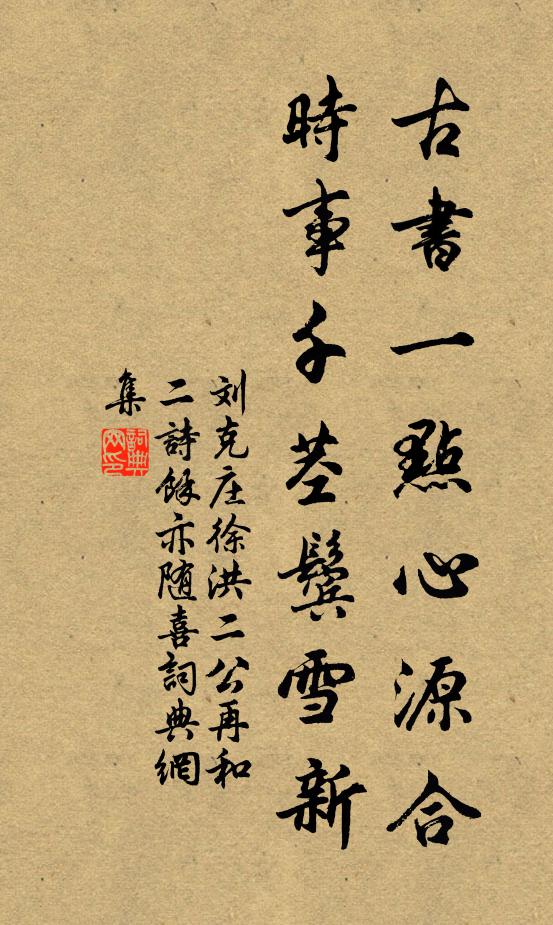 古書一點心源合
時事千莖鬢雪新
刘克庄徐洪二公再和
二詩餘亦随喜詞典網
集
詞典
网印